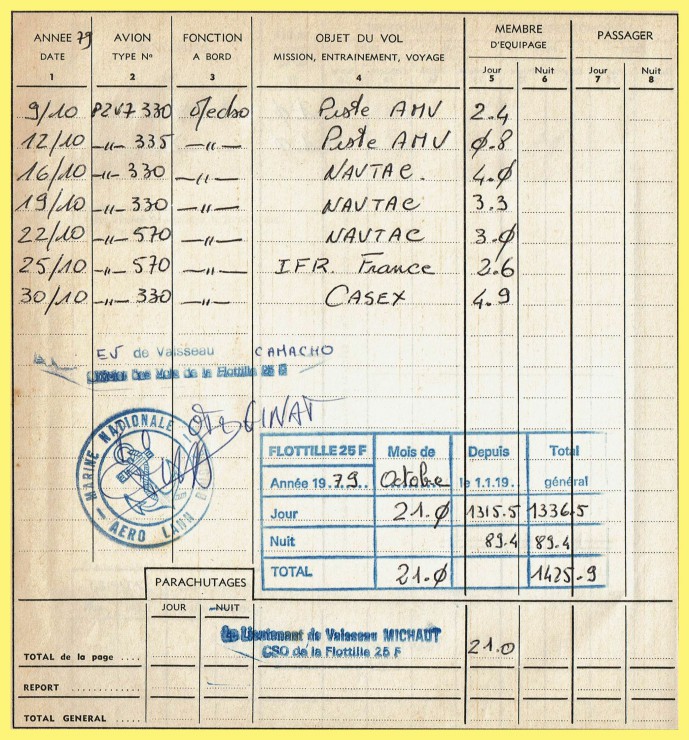 ANNEE 79 AVION FONCTION OBJET DU VOL MEMBRE D'EQUIPAGE PASSAGER
DATE TYPE Nº A BORD MISSION, ENTRAINEMENT, VOYAGE Jour Nuit Jour Nuit
1 2 3 4 5 6 7 8
9/10 P2V7 330 Piste AMV 2.4
12/10 -"- 335 -"- Piste AMV 0.8
16/10 -"- 330 -"- NAVTAC. 4.0
19/10 -"- 330 -"- NAVTAC 3.3
22/10 -"- 570 -"- NAVTAC 3.0
25/10 -"- 570 -"- IFR. France 2.6
30/10 -"- 330 -"- CASEX 4.9
EV de Vaisseau CAMACHO
Officier des Vols de la Flottille 25 F
GINAT
MARINE NATIONALE
AERO LANN
FLOTTILLE 25 F Mois de Depuis Total
Année 19.79.. Octobre le 1.1.19.. général
Jour 21.0 1315.5 1336.5
Nuit 89.4 89.4
TOTAL 21.0 1425.9
PARACHUTAGES
JOUR NUIT
Le Lieutenant de Vaisseau MICHAUT
CSO de la Flottille 25 F
TOTAL de la page .... 21.0
REPORT ............
TOTAL GENERAL .......